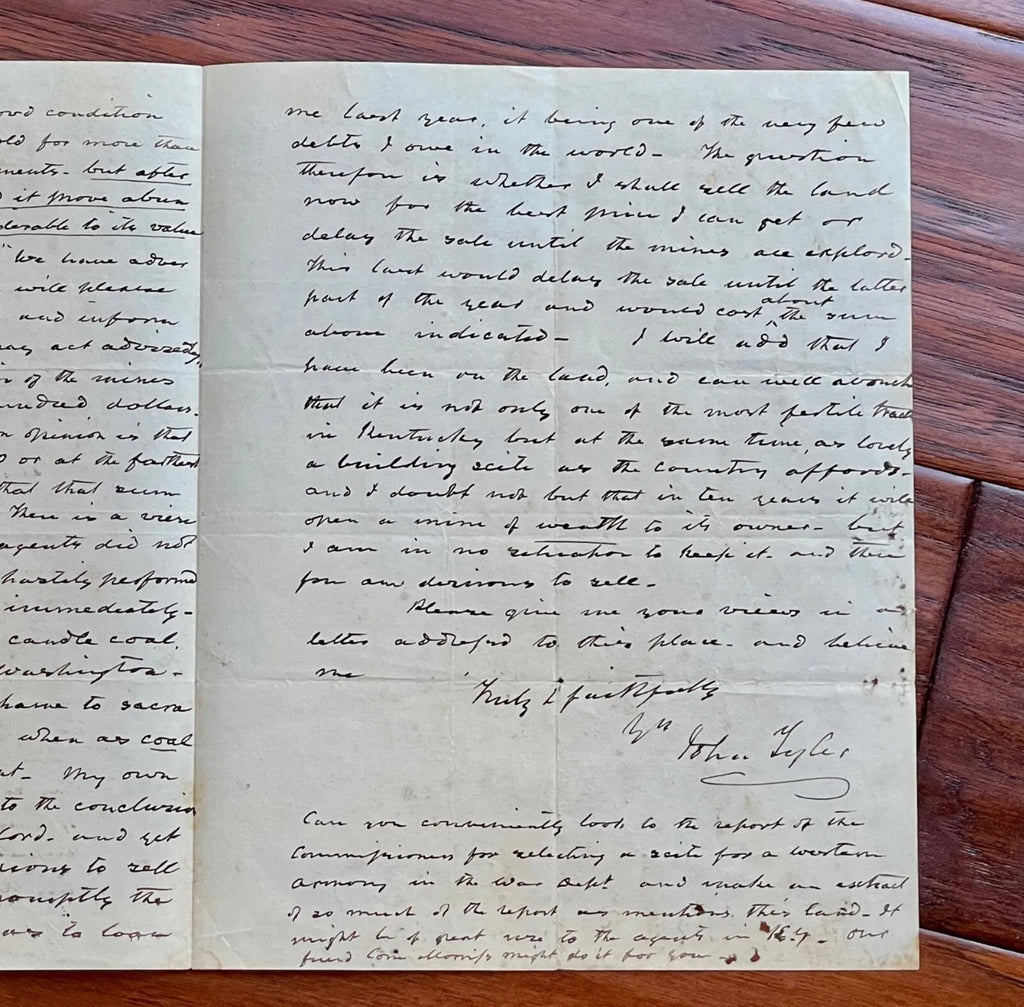 ood condition
old for more than
ments - but after
it prove abun
derable to its value
" We have adver
will please
and inform
may act advisedly"
of the mines
undred dollars.
n opinion is that
or at the farthest
that that sum
There is a view
agents did not
hastily performed
immediately -
candle coal.
Washington -
have to sacra
when as coal
My own
to the conclusion
and yet
sell
romptly the
as to loan
me last year, it being one of the very few
debts I owe in the world - The question
therefore is whether I shall sell the land
now for the best price I can get or
delay the sale until the mines are explord -
This last would delay the sale until the latter
part of the year and would cost about the sum
above indicated - I will add that I
have been on the land, and can well avouch
that it is not only one of the most fertile tract
in Kentucky but at the same time, as lovely
a building scite as the country affords -
and I doubt not but that in ten years it will
open a mine of wealth to its owner - but
I am in no situation to keep it - and there
for am desirous to sell -
Please give me your views in a
letter addressd to this place - and believe
me
Truly & faithfully
Yrs
John Tyler
Can you conveniently look to the report of the
Commissioners for selecting a scite for a western
armory in the War Dept and make an extract
of so much of the report as mentions this land - It
might be of great use to the agents in Ky - our
friend Com Morriss might do it for you -